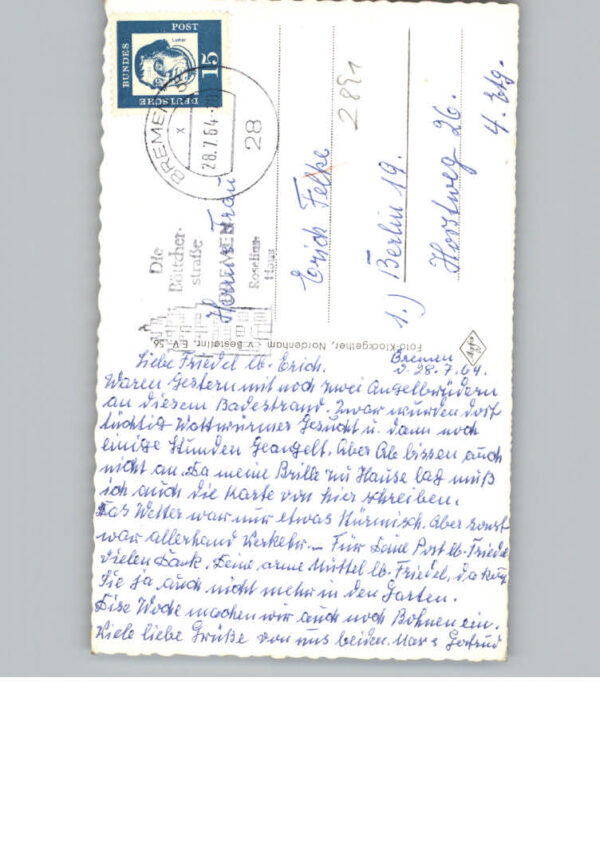 DEUTSCHE
BUNDES
POST
Luther
15
BREMEN
28.7.64
28
x
Die
Böttcher-
straße
BREMEN
Roselius-
Haus
2891
Herrn u. Frau
Erich Felke
1.) Berlin 19.
Horstweg 26.
4. Etg.
Foto-Klockgether, Nordenham v Bestellnr. E.V. 56
Agfa
Bremen
d. 28.7.64.
Liebe Friedel lb. Erich.
Waren Gestern mit noch zwei Angelbrüdern
an diesem Badestrand. Zwar wurden dort
tüchtig Wattwürmer Gesucht u. dann noch
einige Stunden Geangelt. Aber Ale bissen auch
nicht an. Da meine Brille zu Hause lag muß
ich auch die Karte von hier schreiben.
Das Wetter war nur etwas Stürmisch. Aber sonst
war allerhand Verkehr. – Für Deine Post lb. Friedel
vielen Dank. Deine arme Muttel lb. Friedel, da kann
Sie ja auch nicht mehr in den Garten.
Dise Woche machen wir auch noch Bohnen ein.
Viele liebe Grüße von uns beiden. Max u Gertrud